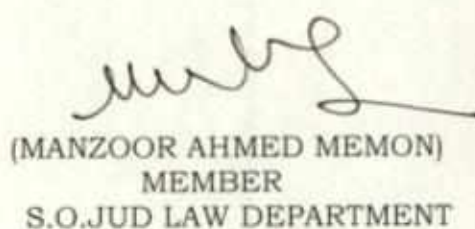 (MANZOOR AHMED MEMON)
MEMBER
S.O.JUD LAW DEPARTMENT